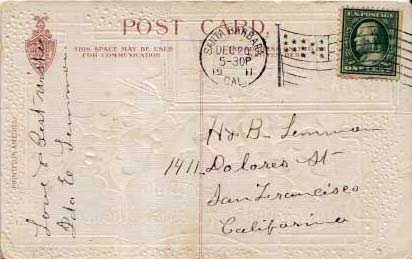 POST CARD
THIS SPACE MAY BE USED
FOR COMMUNICATION
SANTA BARBARA
DEC 20
5-30P
1911
CAL.
U.S. POSTAGE
Love & Best wishes
Ida E. Lemmon
H B Lemmon
1411 Dolores St
San Francisco
California